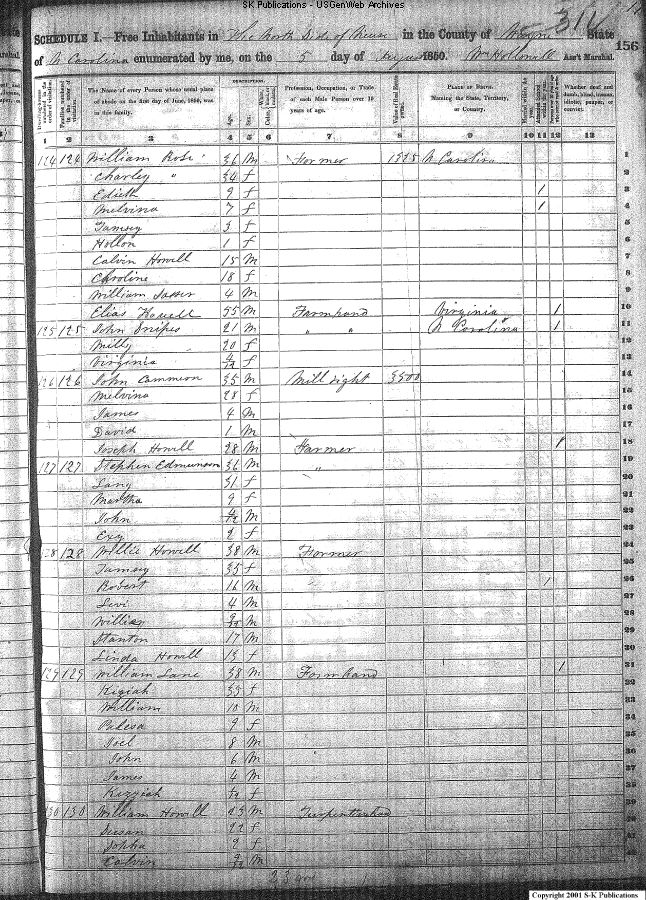 SK Publications - USGenWeb Archives
SCHEDULE I.—Free Inhabitants in The North Side of Neuse in the County of Wayne State 311
of N Carolina enumerated by me, on the 5 day of August 1850. Wm Hollowell Ass't Marshal. 156
DESCRIPTION.
Dwelling-houses numbered in the order of visitation.
Families numbered in the order of visitation.
The Name of every Person whose usual place of abode on the first day of June, 1850, was in this family.
Age.
Sex.
Profession, Occupation, or Trade of each Male Person over 15 years of age.
Value of Real Estate owned.
PLACE OF BIRTH. Naming the State, Territory, or Country.
Married within the year.
Whether deaf and dumb, blind, insane, idiotic, pauper, or convict.
1 2 3 4 5 6 7 8 9 10 11 12 13
124 124 William Rose 36 M Farmer 1525 N Carolina 1
Charley " 34 f 2
Edieth 9 f 1 3
Melvina 7 f 1 4
Tamsey 3 f 5
Hollon 1 f 6
Calvin Howell 15 M 7
Caroline 18 f 8
William Sasser 4 M 9
Elias Howell 55 M Farmhand Virginia 1 10
125 125 John Snipes 21 M " " N Carolina 1 11
Milly 20 f 12
Virginia 4/12 f 13
126 126 John Cammeron 35 M Mill right 3500 14
Melvina 28 f 15
James 4 M 16
David 1 M 17
Joseph Howell 28 M Farmer 1 18
127 127 Stephen Edmundson 36 M " 19
Lany 31 f 20
Martha 9 f 21
John 4/12 M 22
Exy 2 f 23
128 128 Willie Howell 38 M Farmer 24
Tamsey 35 f 25
Robert 16 M 1 26
Levi 4 M 27
William M 28
Stanton 17 M 29
Linda Howell 15 f 30
129 129 William Lane 38 M Farmhand 1 31
Kiziah 35 f 32
William 10 M 33
9 f 34
Joel 8 M 35
John 6 M 36
James 4 M 37
Kizziah f 38
130 130 William Howell 23 M 39
Susan 22 f 40
Sopha 2 f 41
Calvin M
Copyright 2001 S-K Publications